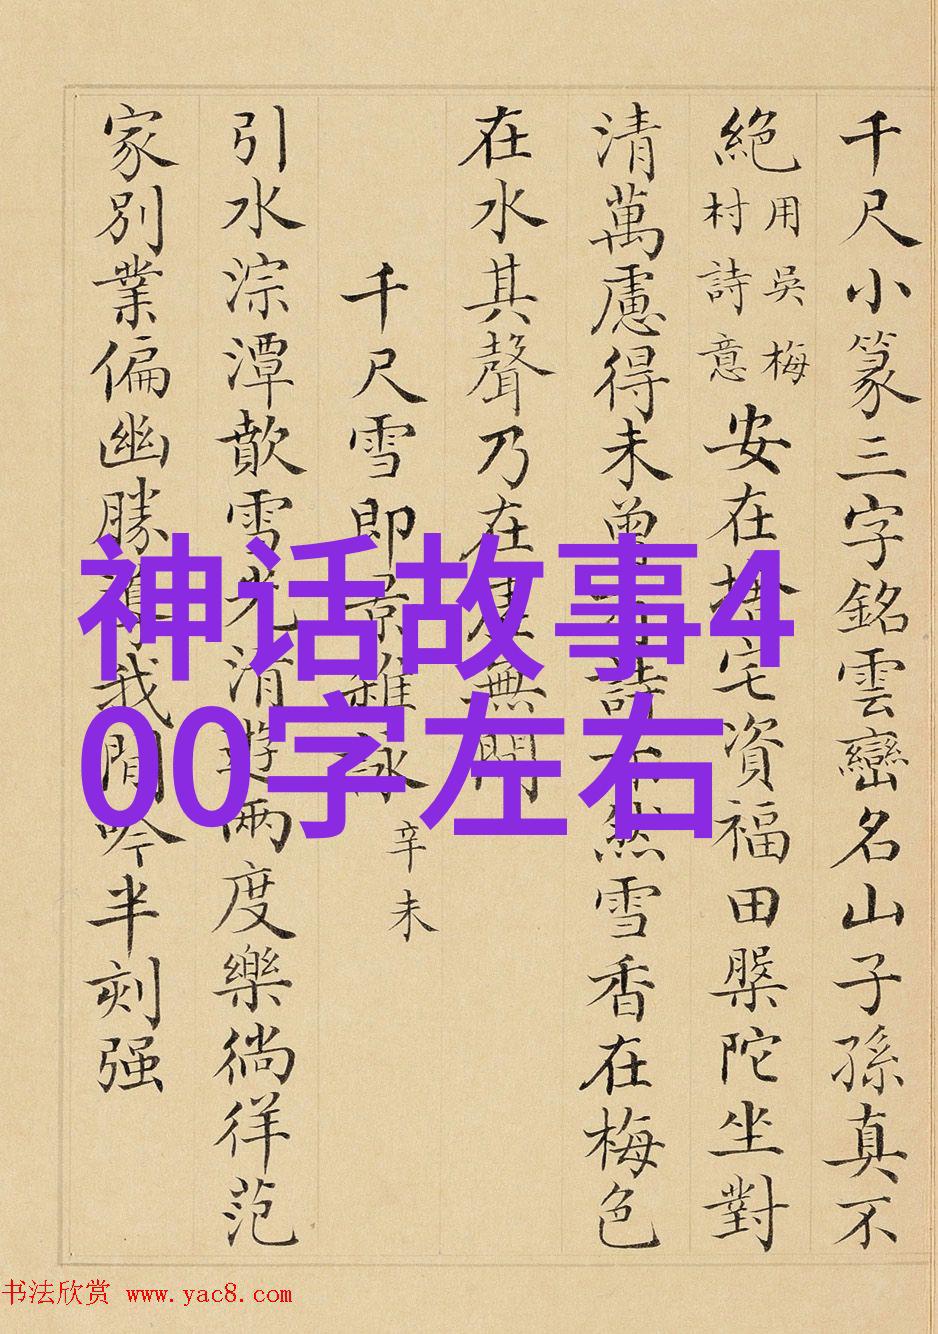 千尺小篆三字銘雲巒名山子孫真不
絕
用吳梅
村詩意
安在捨宅資福田槃陀坐對
清萬慮得未曾有詩不然雪香在梅色
在水其聲乃在虛無間
千尺雪即景雜詠
辛未
引水淙潭歕雪光清遊兩度樂徜徉范
家別業偏幽勝 我閒吟半刻强
神话故事4
00字左右
书法欣赏 www.yac8.com